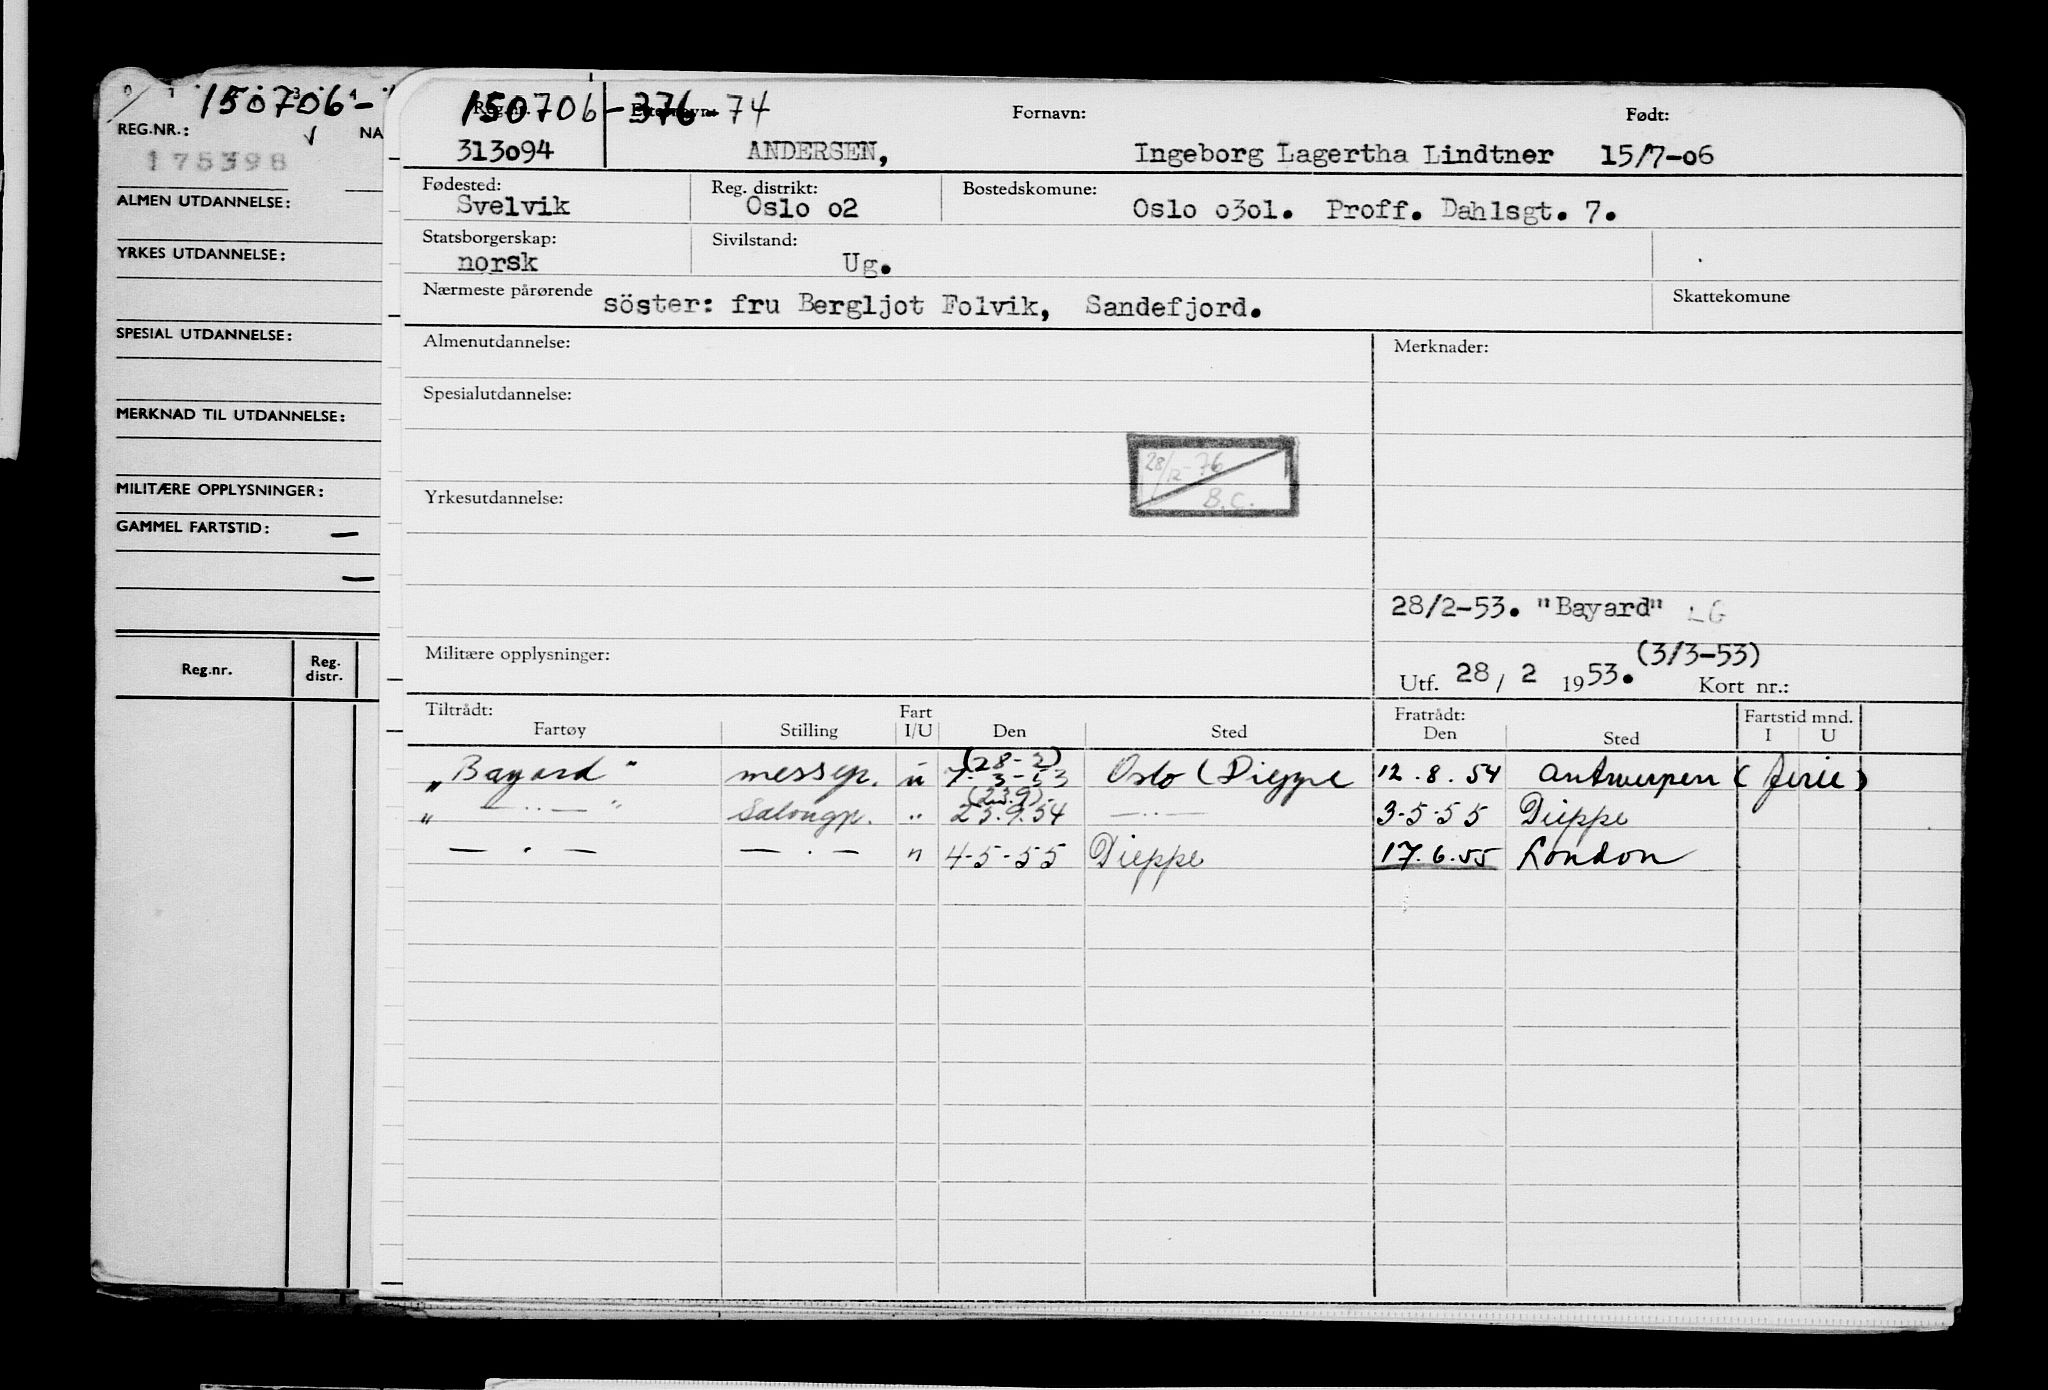 150706-
REG.NR.: NA
175398
ALMEN UTDANNELSE:
YRKES UTDANNELSE:
SPESIAL UTDANNELSE:
MERKNAD TIL UTDANNELSE:
MILITÆRE OPPLYSNINGER:
GAMMEL FARTSTID: —
—
Reg.nr. Reg. distr.
150706-376-74 Fornavn: Født:
313094 ANDERSEN, Ingeborg Lagertha Lindtner 15/7-06
Fødested: Reg. distrikt: Bostedskomune:
Svelvik Oslo o2 Oslo o3o1. Proff. Dahlsgt. 7.
Statsborgerskap: Sivilstand:
norsk Ug.
Nærmeste pårørende söster: fru Bergljot Folvik, Sandefjord. Skattekomune
Almenutdannelse: Merknader:
Spesialutdannelse:
28/12-76
B.C.
Yrkesutdannelse:
28/2-53. "Bayard" LG
Militære opplysninger: (3/3-53)
Utf. 28/ 2 1953. Kort nr.:
Tiltrådt: Fart Fratrådt: Fartstid mnd.
Fartøy Stilling I/U Den Sted Den Sted I U
(28-2)
„Bayard" messep. u 7-3-53 Oslo (Dieppe 12.8.54 Antwerpen (ferie)
(23.9).
„ —..— " Salongp. " 25.9.54 —..— 3-5-55 Dieppe
— . — — . — " 4-5-55 Dieppe 17.6.55 London